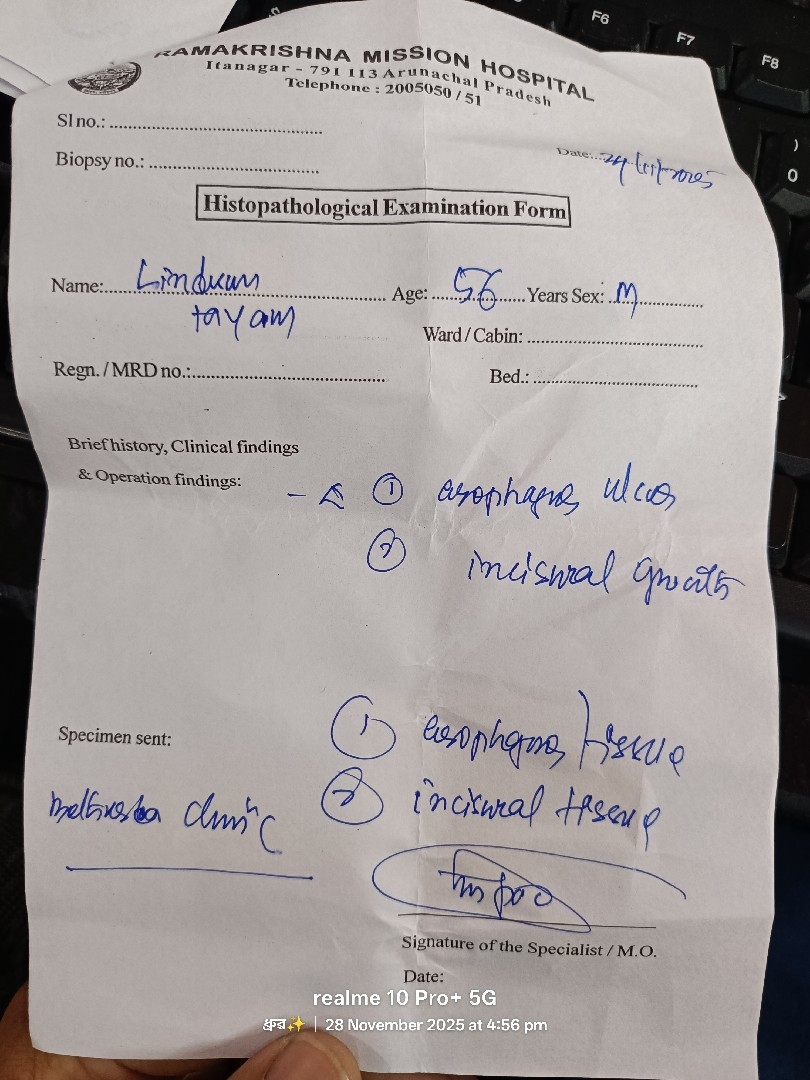 RAMAKRISHNA MISSION HOSPITAL
Itanagar - 791 113 Arunachal Pradesh
Telephone : 2005050 / 51
Sl no.: ..........
Date:...24/11/2025
Biopsy no.: ..........
Histopathological Examination Form
Name:....Lindum Age:....56....Years Sex:..M....
tayam
Ward / Cabin: ..........
Regn. / MRD no.:..........
Bed.: ..........
Brief history, Clinical findings
& Operation findings:
- Δ ① esophagus ulcer
② incisural growth
Specimen sent:
① esophagus tissue
② incisural tissue
clinic
Signature of the Specialist / M.O.
Date:
realme 10 Pro+ 5G
ध्रुव✨ | 28 November 2025 at 4:56 pm
F6
F7
F8
)
0